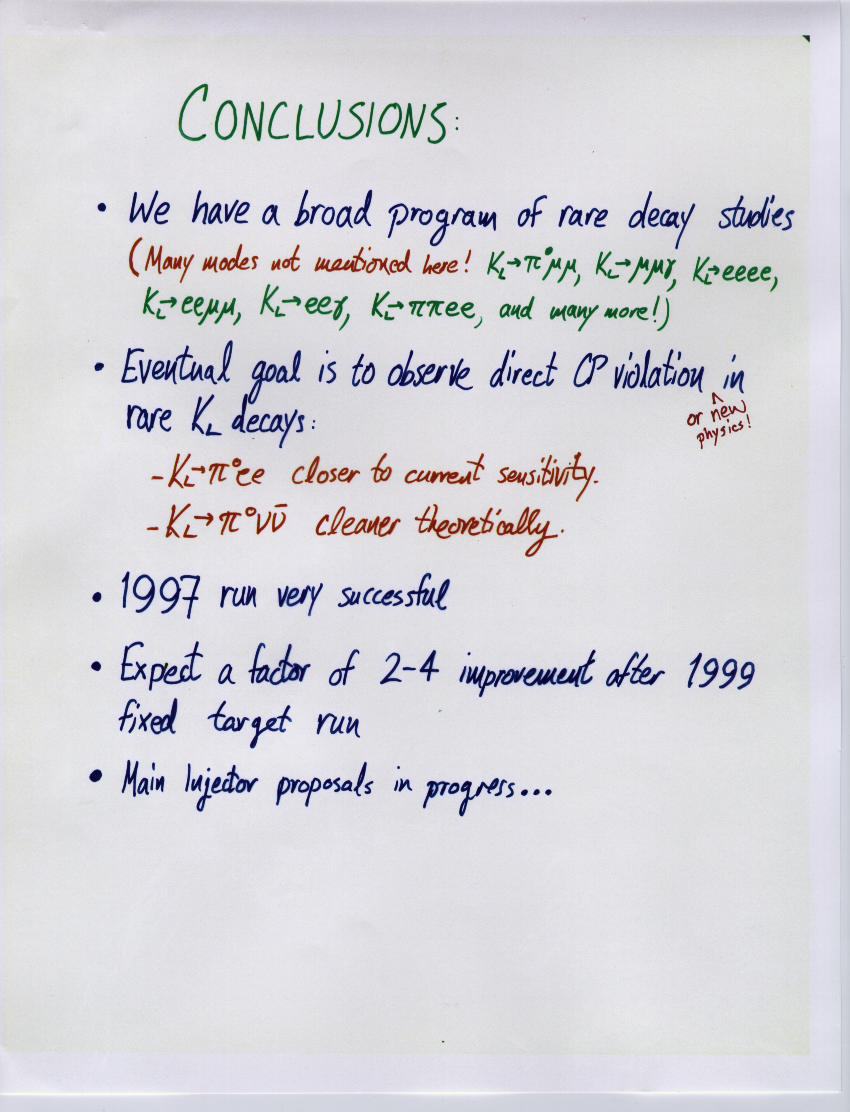 CONCLUSIONS:
• We have a broad program of rare decay studies
(Many modes not mentioned here! K_L→π°μμ, K_L→μμγ, K_L→eeee,
K_L→eeμμ, K_L→eeγ, K_L→ππee, and many more!)
• Eventual goal is to observe direct CP violation ^ in
or new
physics!
rare K_L decays:
- K_L→π°ee closer to current sensitivity.
- K_L→π°νν̄ cleaner theoretically.
• 1997 run very successful
• Expect a factor of 2-4 improvement after 1999
fixed target run
• Main Injector proposals in progress...